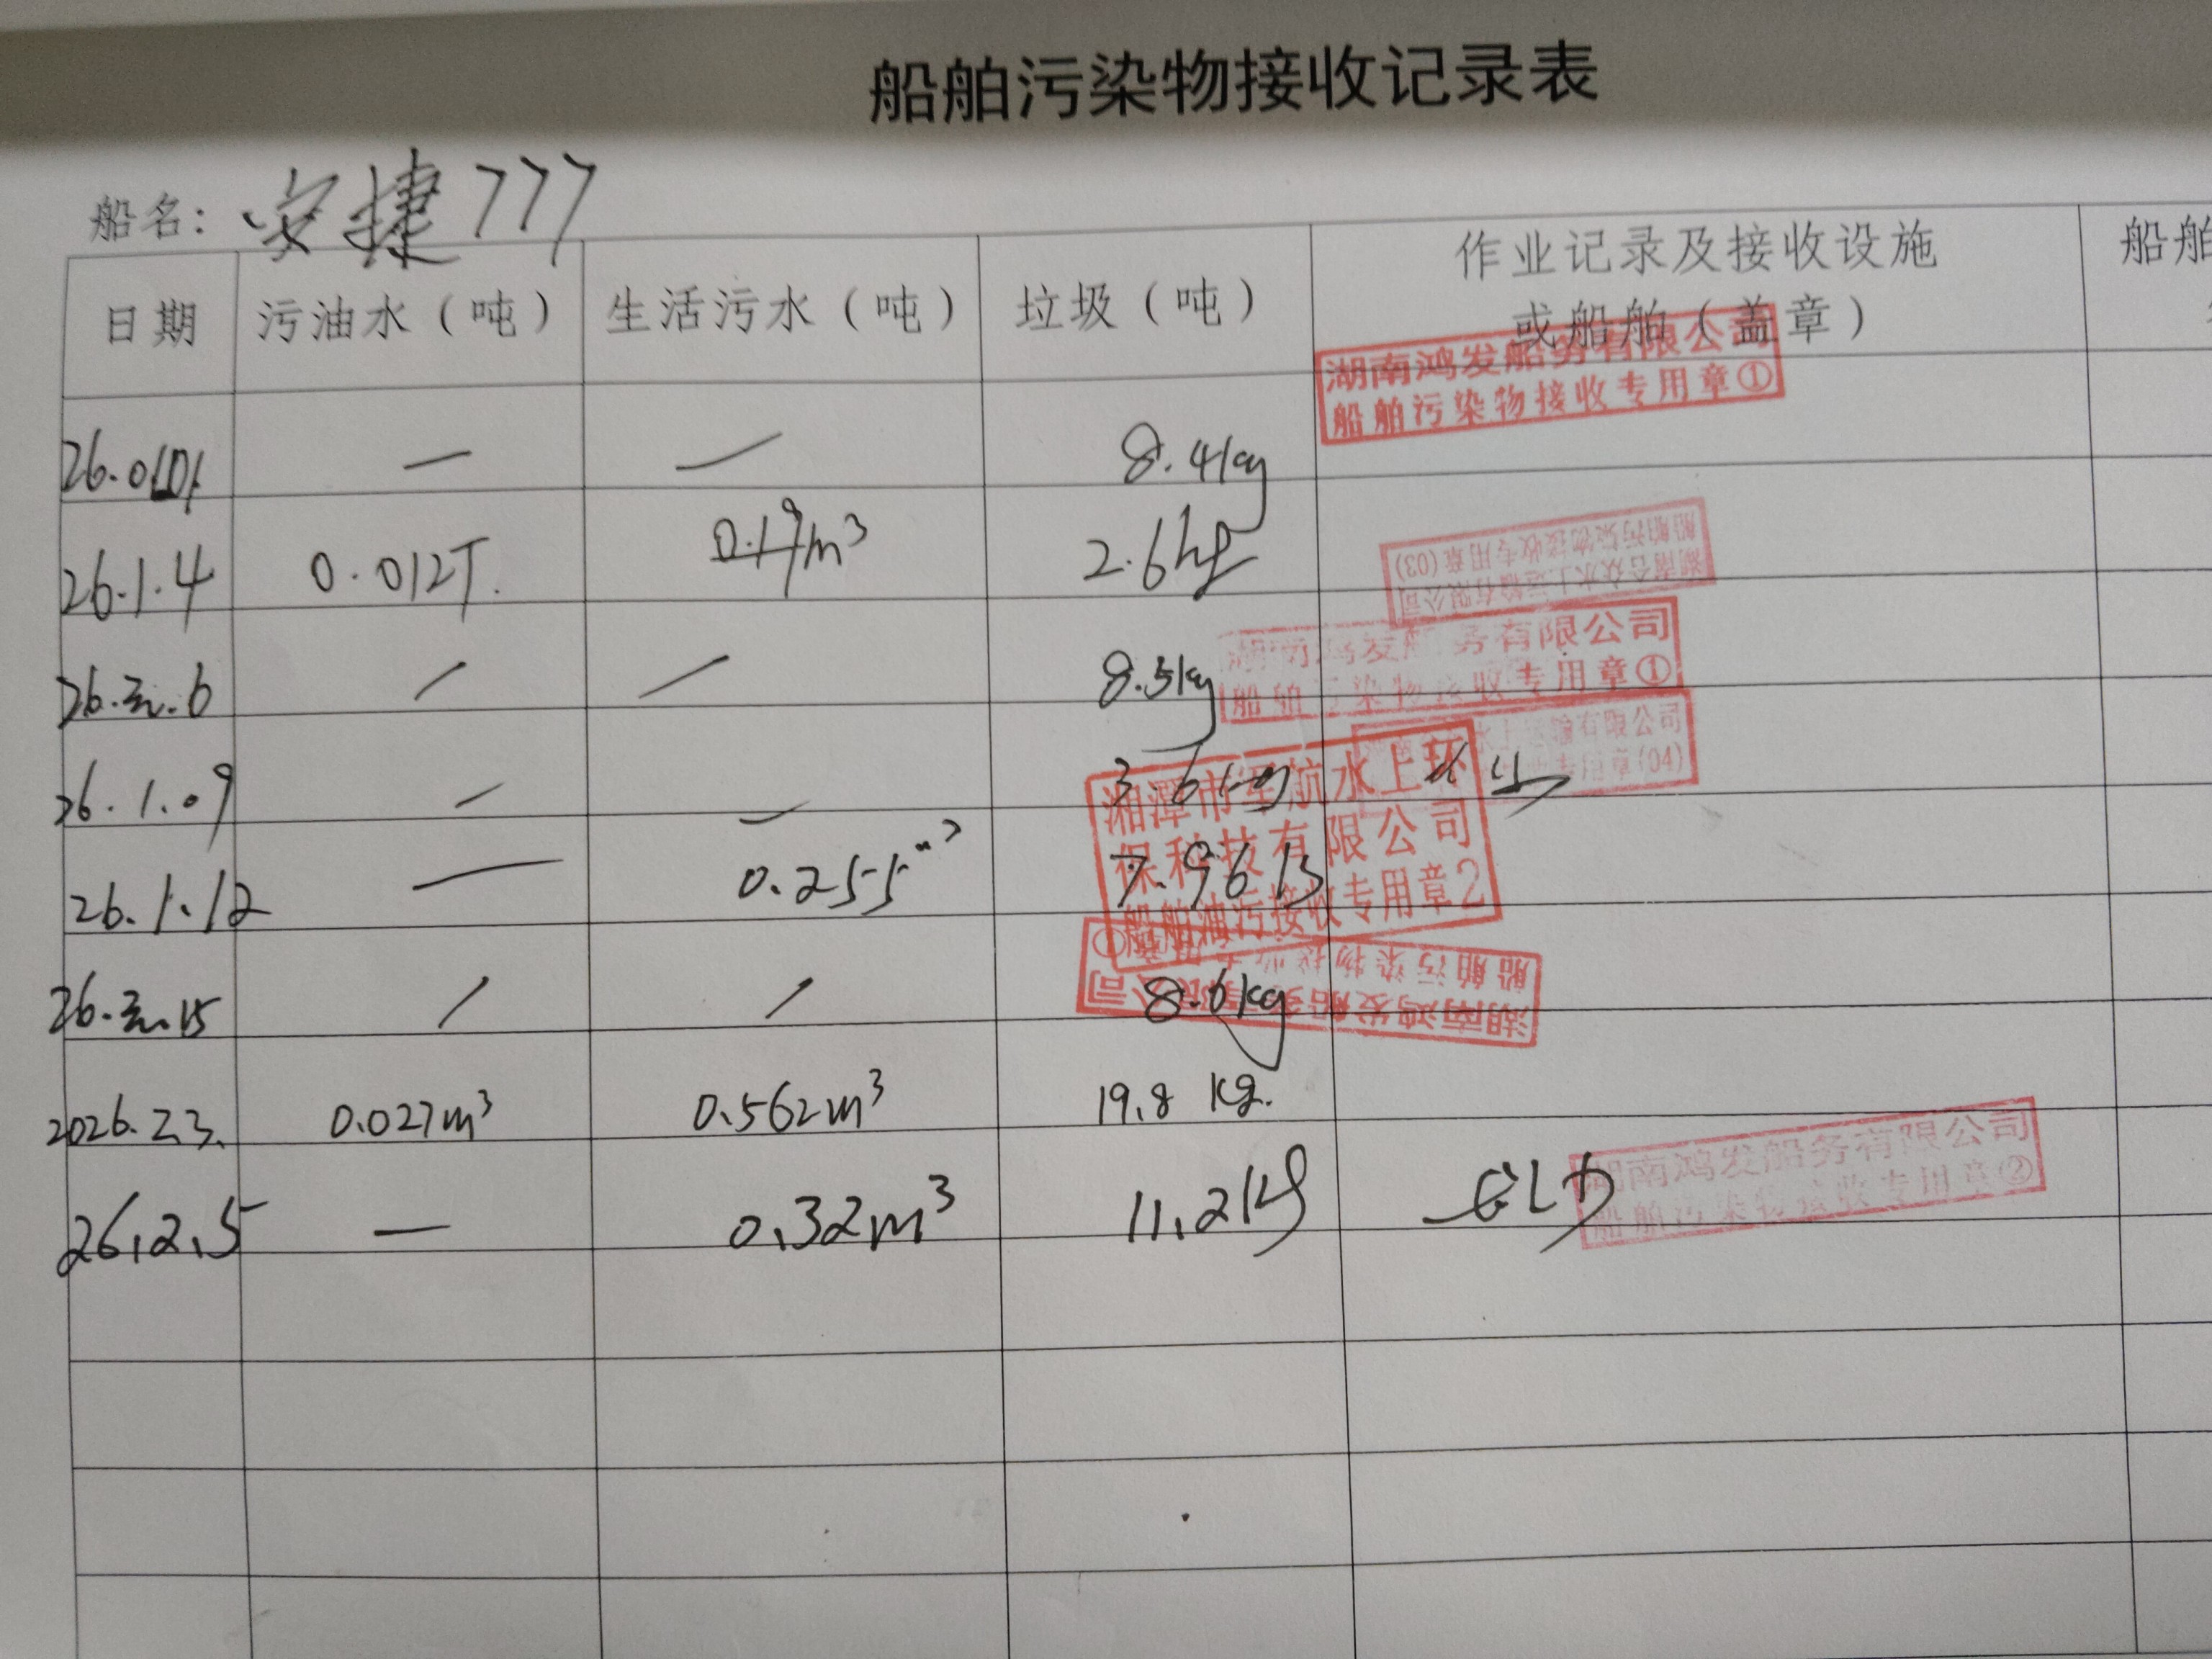 船舶污染物接收记录表
船名：安捷777
日期 污油水（吨） 生活污水（吨） 垃圾（吨） 作业记录及接收设施或船舶（盖章） 船舶
湖南鸿发船务有限公司
船舶污染物接收专用章①
26.0101 — — 8.4kg
26.1.4 0.012T. m³ 2.6kg
湖南合众水上运输有限公司
船舶污染物接收专用章(03)
湖南鸿发船务有限公司
船舶污染物接收专用章①
26.元.6 / / 8.5kg
水上运输有限公司
专用章(04)
26.1.09 — — 3.6kg
湘潭市 航水上环
保科技有限公司
船舶油污接收专用章2
26.1.12 — 0.255m³ 7.96
湖南鸿发船务有限公司
船舶污染物接收专用章①
26.元.15 / / 8.6kg
2026.2.3. 0.027m³ 0.562m³ 19.8 kg.
湖南鸿发船务有限公司
船舶污染物接收专用章②
26.2.5 — 0.32m³ 11.2kg